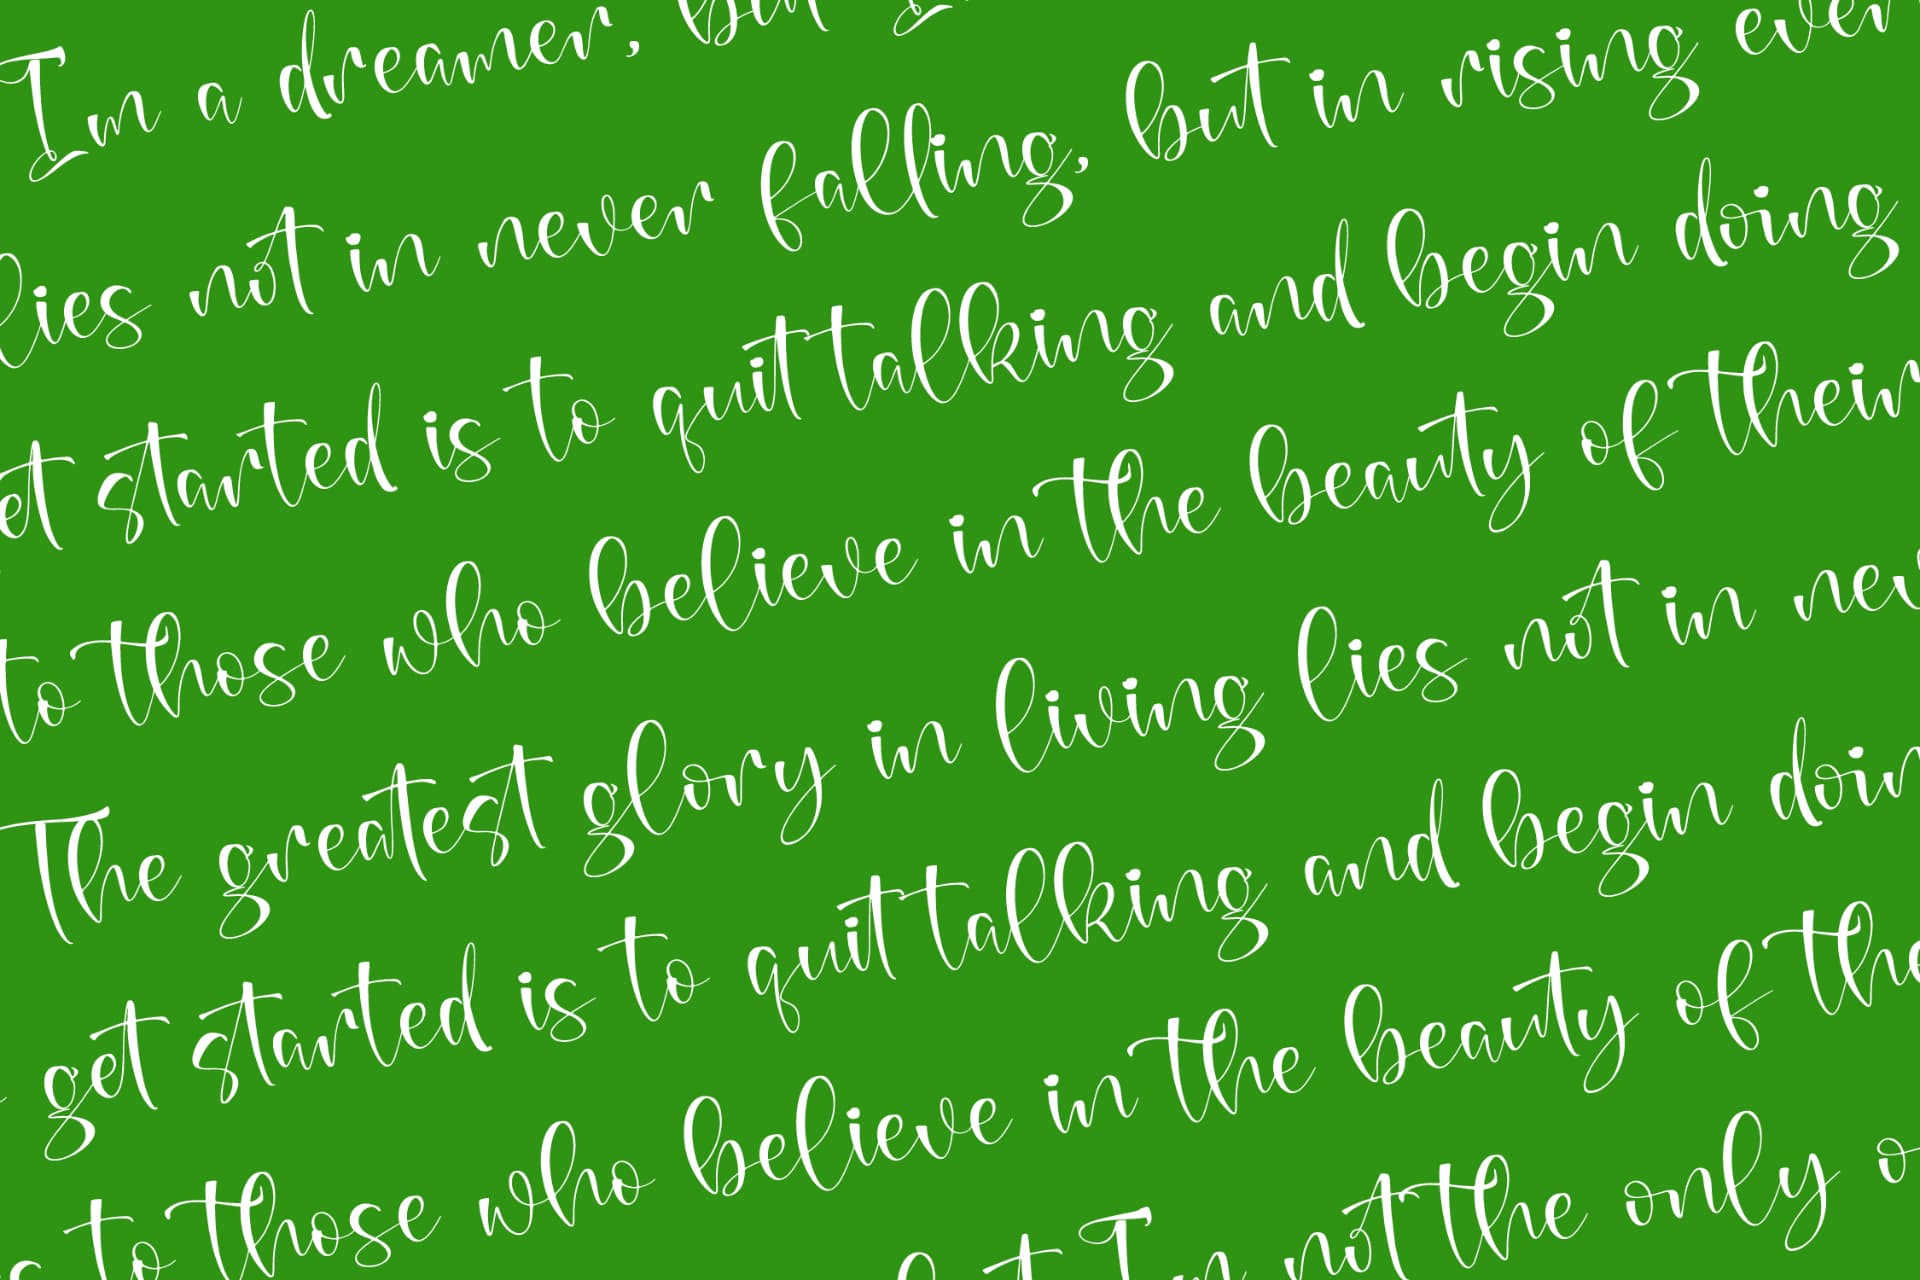 I'm a dreamer, but I
lies not in never falling, but in rising ever
et started is to quit talking and begin doing
to those who believe in the beauty of their
The greatest glory in living lies not in nev
get started is to quit talking and begin doin
s to those who believe in the beauty of the
but I'm not the only o